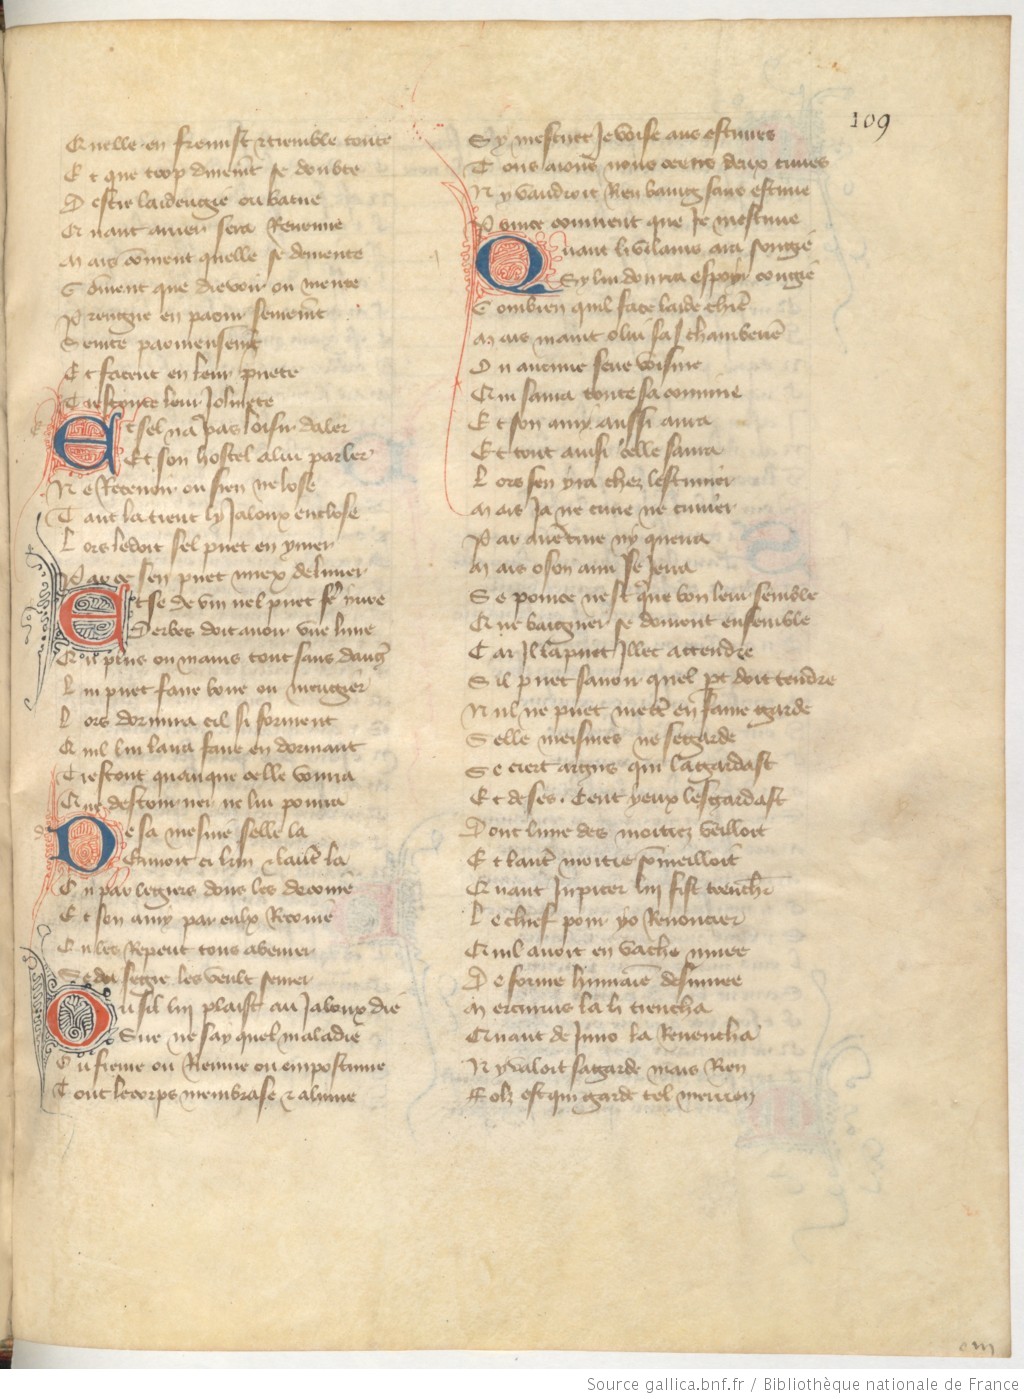 109
Quelle en fremist et tremble toute
Et que trop durement se doubte
Destre laidengie ou batue
Quant amen sera Revenue
Mais coment quelle se demente
Coment que die voir ou mente
Prengne en paour
Et facent en leur
Tresconte leur Jolivete
Et sel na pas loisir daler
Et son hostel a lui parler
Ne Recevoir ou sien ne lose
Tant la tient ly Jaloux enclose
Lors le doit sel puet en yvrer
Par ce sen puet miex delivrer
Et se de vin nel puet fere yvre
Derbes doit avoir une livre
Ou plus ou mains dont sans dangier
Li puet faire boire ou mengier
Lors dormira cil si forment
Quil lui laira faire en dormant
Trestout quanque celle vouura
Que destourner ne lui pourra
De sa mesnie selle la
Envoit ci lun et lautre la
Ou par legiers dons les decoive
Et son amy par eulx Recoive
Ou les Repeut tous abevrer
Se du segre les veult sevrer
Ou sil lui plaist au Jaloux die
Sire ne say quel maladie
Ou fievre ou
Tout le corps membrase et alume
Sy mestuet Je voise aus estuves
Tous aions nous ceens deux cuves
Ny vaudroit Rien baing sans estuve
Pour ce convient que Je mestuve
Quant li vilains aura songie
Sy lui donrra espoir congie
Combien quil face laide chiere
Mais maint o lui sa chamberiere
Ou aucune seue voisine
Qui saura toute sa convine
Et son amy aussi aura
Et tout ainsi celle saura
Lors sen yra chez lestuvier
Mais Ja ne cuve ne cuvier
Par aventure ny querra
Mais o son ami se Jerra
Se pource nest que bon leur semble
Que baignier se doivent ensemble
Car Il la puet Illec attendre
Sil puet savoir quel part doit tendre
Nul ne puet mettre en fame garde
Selle meismes ne se garde
Se ciert argus qui la gardast
Et de ses . Cent yeux lesgardast
Dont lune des moitiez veilloit
Et lautre moitie sommeilloit
Quant Jupiter lui fist trenchier
Le chief pour yo Revencier
Quil avoit en vache muee
De forme humaine desnuee
Mercurius la li trencha
Quant de Juno la Revencha
Ny valoit sa garde mais Rien
Folz est qui garde tel merrien
Source gallica.bnf.fr / Bibliothèque nationale de France